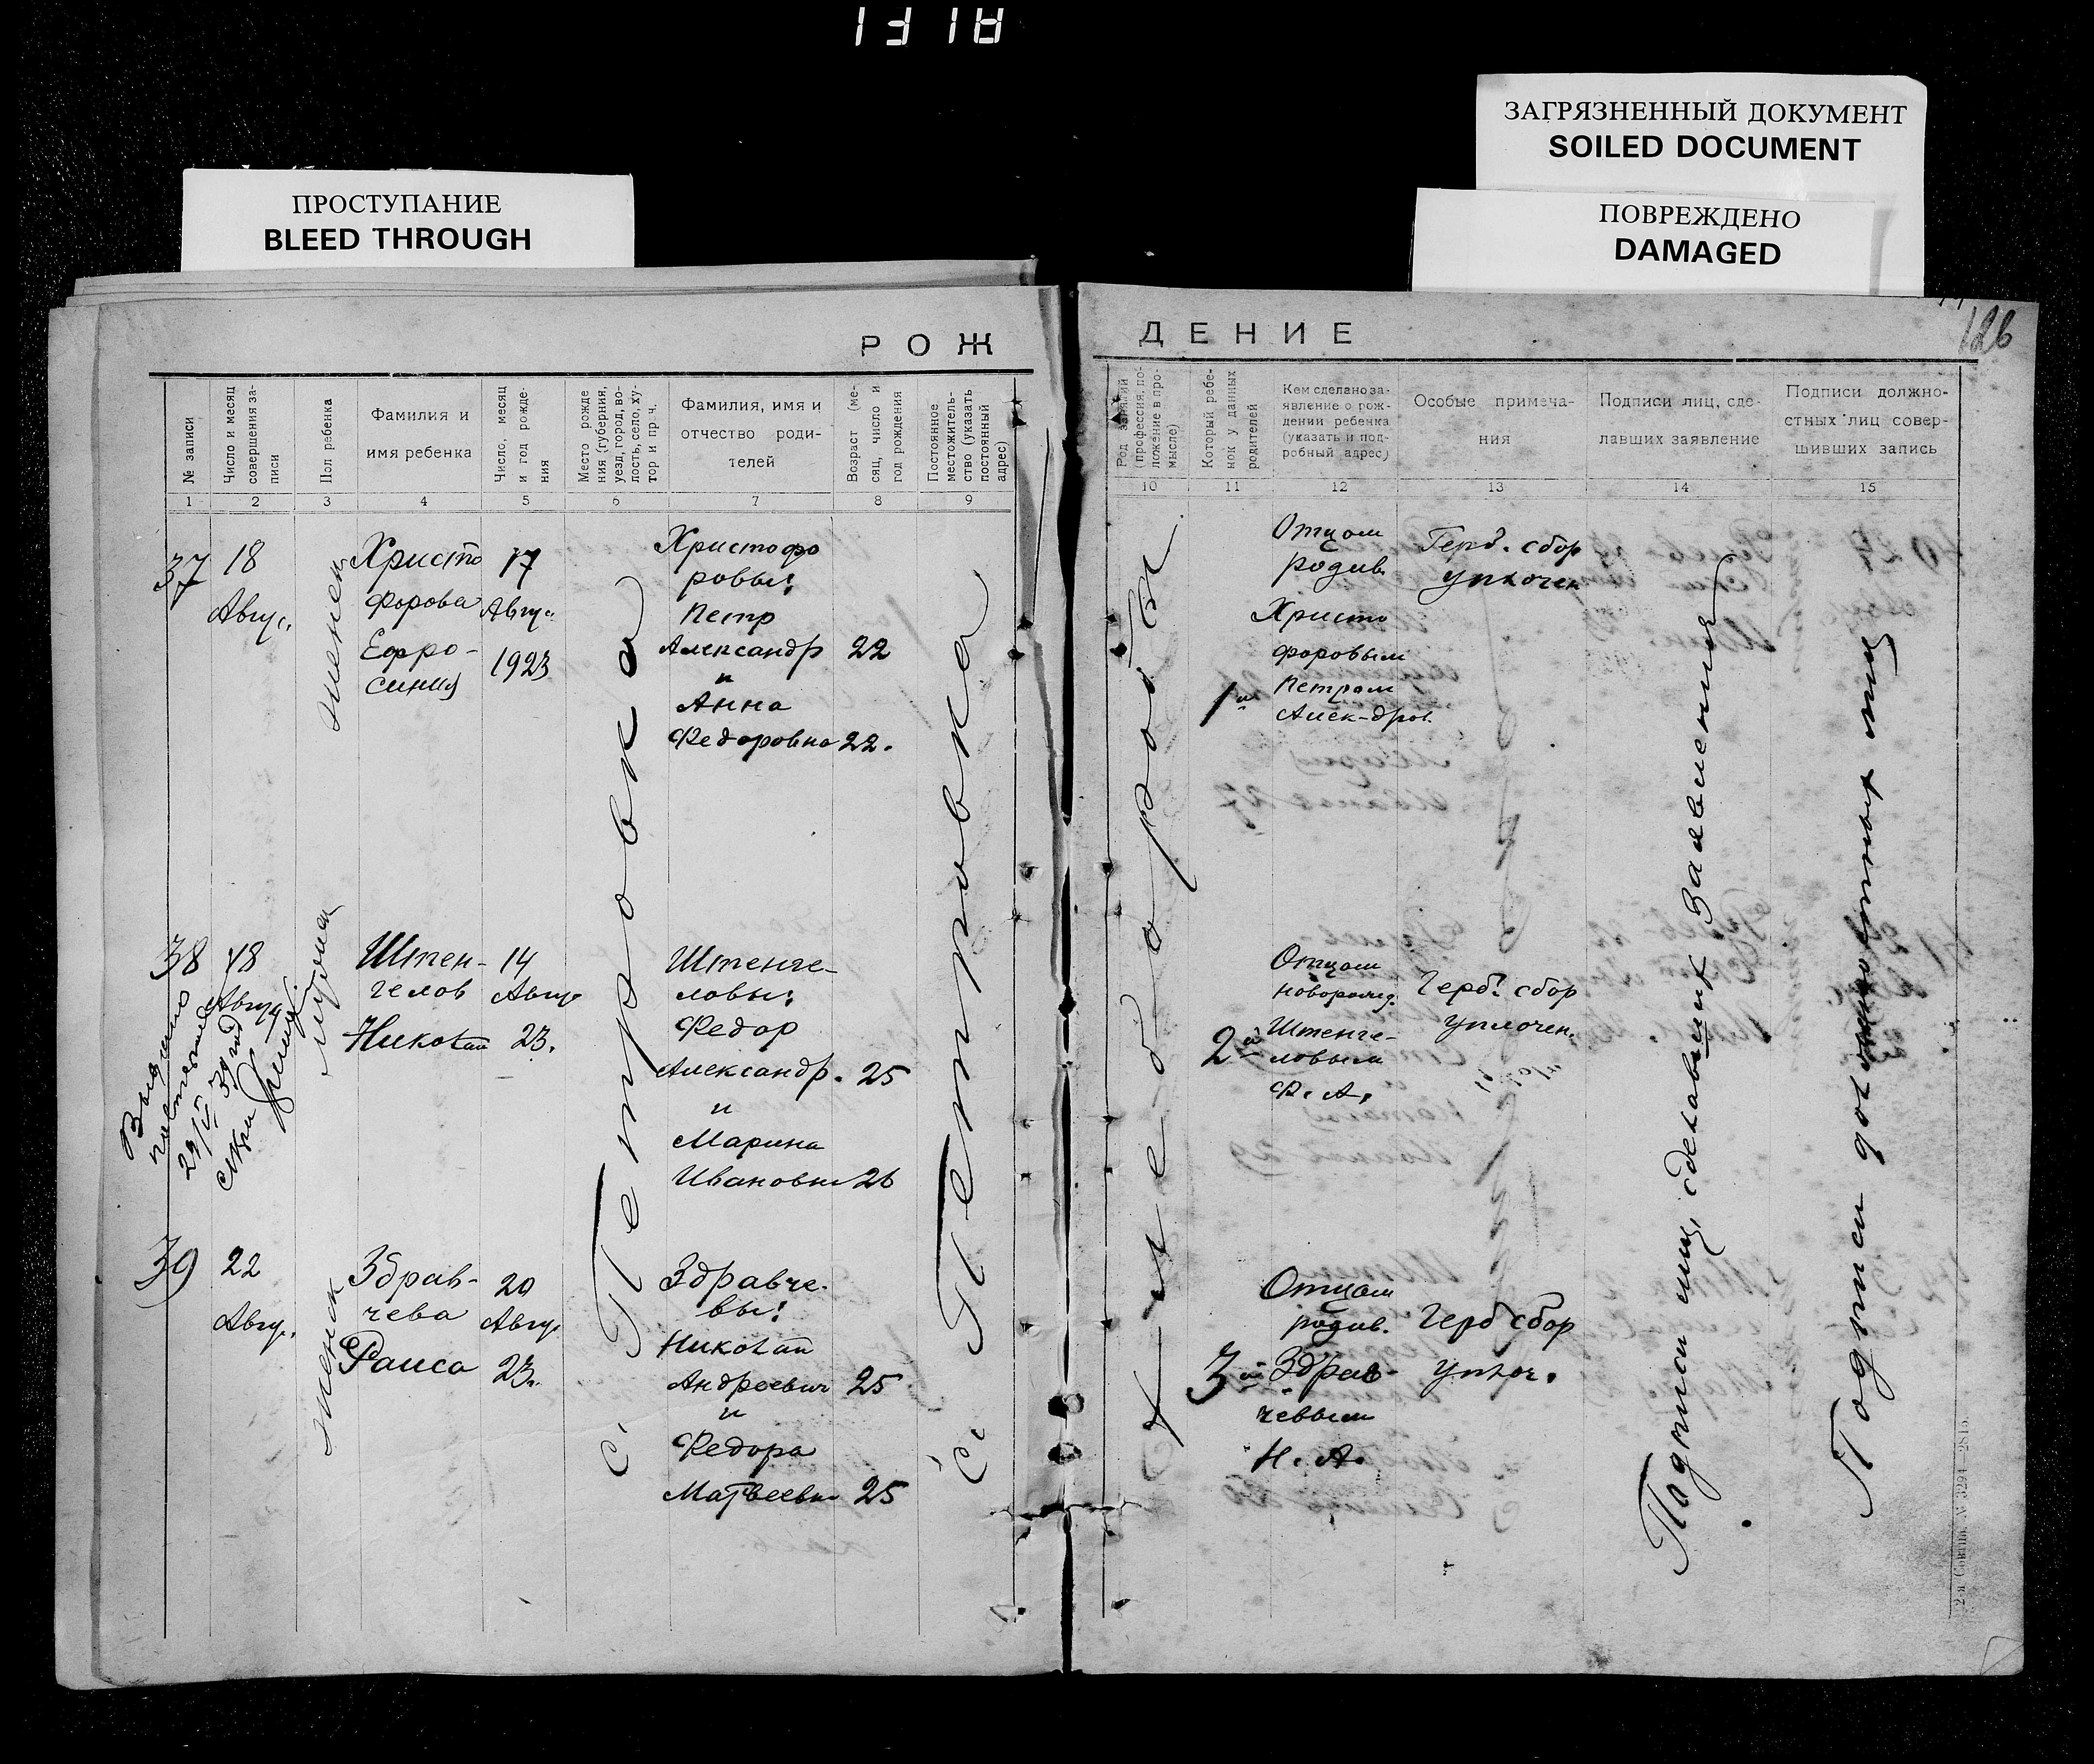 ЗАГРЯЗНЕННЫЙ ДОКУМЕНТ
SOILED DOCUMENT
ПРОСТУПАНИЕ
BLEED THROUGH
ПОВРЕЖДЕНО
DAMAGED
РОЖ
ДЕНИЕ
126
№ записи
Число и месяц
совершения за-
писи
Пол ребенка
Фамилия и
имя ребенка
Число, месяц
и год рожде-
ния
Место рожде
ния (губерния,
уезд, город, во-
лость, село, ху-
тор и пр. ч.
Фамилия, имя и
отчество роди-
телей
Возраст (ме-
сяц, число и
год рождения
Постоянное
местожитель-
ство (указать
постоянный
адрес)
Род занятий
(профессия, по-
ложение в про-
мысле)
Который ребе-
нок у данных
родителей
Кем сделано за-
явление о рож-
дении ребенка
(указать и под-
робный адрес)
Особые примеча-
ния
Подписи лиц, сде-
лавших заявление
Подписи должно-
стных лиц совер-
шивших запись
1 2 3 4 5 6 7 8 9
10 11 12 13 14 15
37
18
Авгус.
женск
Христо
форова
Ефро-
синия
17
Август
1923
Христофо
ровы:
Петр
Александр 22
и
Анна
Федоровна 22.
1й
Отцом
родив.
Христо
форовым
Петром
Алек-дров.
Герб. сбор
уплочен
38
18
Август
мужск
Штен-
гелов
Николай
14
Август
23.
Штенге-
ловы:
Федор
Александр. 25
и
Марина
Ивановна 26
2й
Отцом
новорожд.
Штенге-
ловым
Ф. А.
Герб. сбор
уплочен.
Выдано
39
22
Авгус.
женск
Здрав-
чева
Раиса
20
Август
23.
Здравче-
вы:
Николай
Андреевич 25
и
Федора
Матвеевна 25
3й
Отцом
родив.
Здрав-
чевым
Н. А.
Герб сбор
уплоч.
с. Петровка
с. Петровка
Хлебороб
Подписи лиц, сделавших заявления
Подписи должностных лиц
2-я Совтип. № 3294—2815.